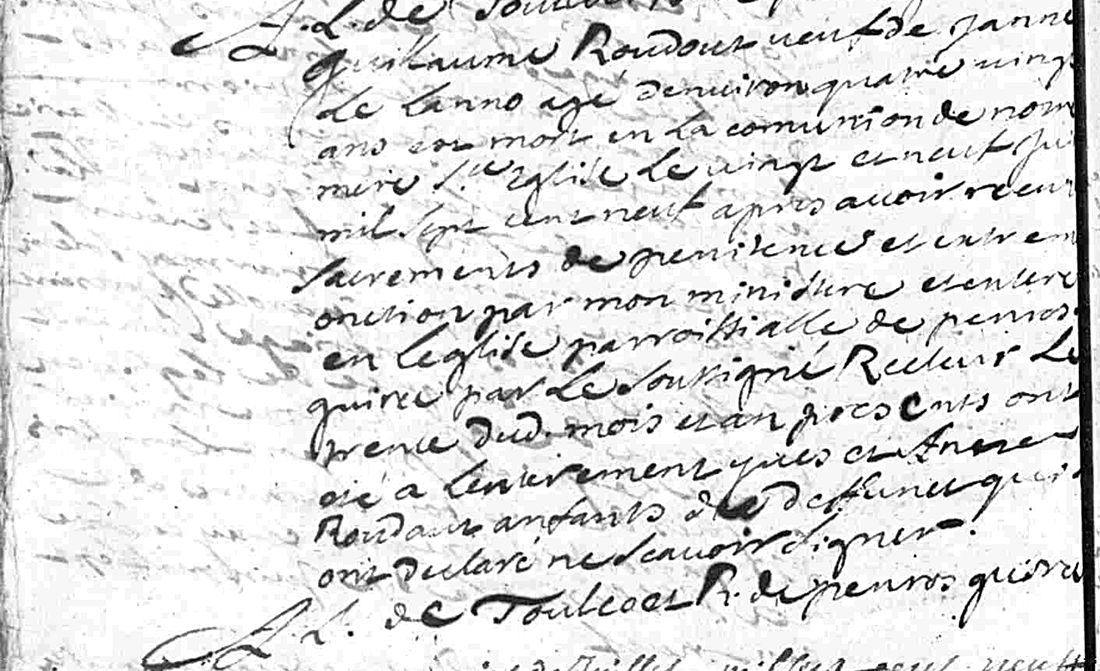 A. L. de Toulco
Guillaume Roudout veuf de janne
Le Lanno agé denuiron quatre vingt
ans est mort en La comunion de notre
mere Ste Eglise Le vingt et neuf Jui
mil sept cent neuf apres avoir receu
sacrements de penitence et extrem
onction par mon ministere et enterre
en Leglise parroissialle de penros
guirec par Le soussigné Recteur Le
trente dud. mois et an presents ont
eté a Lenterement yues et
Roudaut anfants de deffunct qui
ont declaré ne scavoir signer.
A. L. de Toulcoet R. de penros guirec